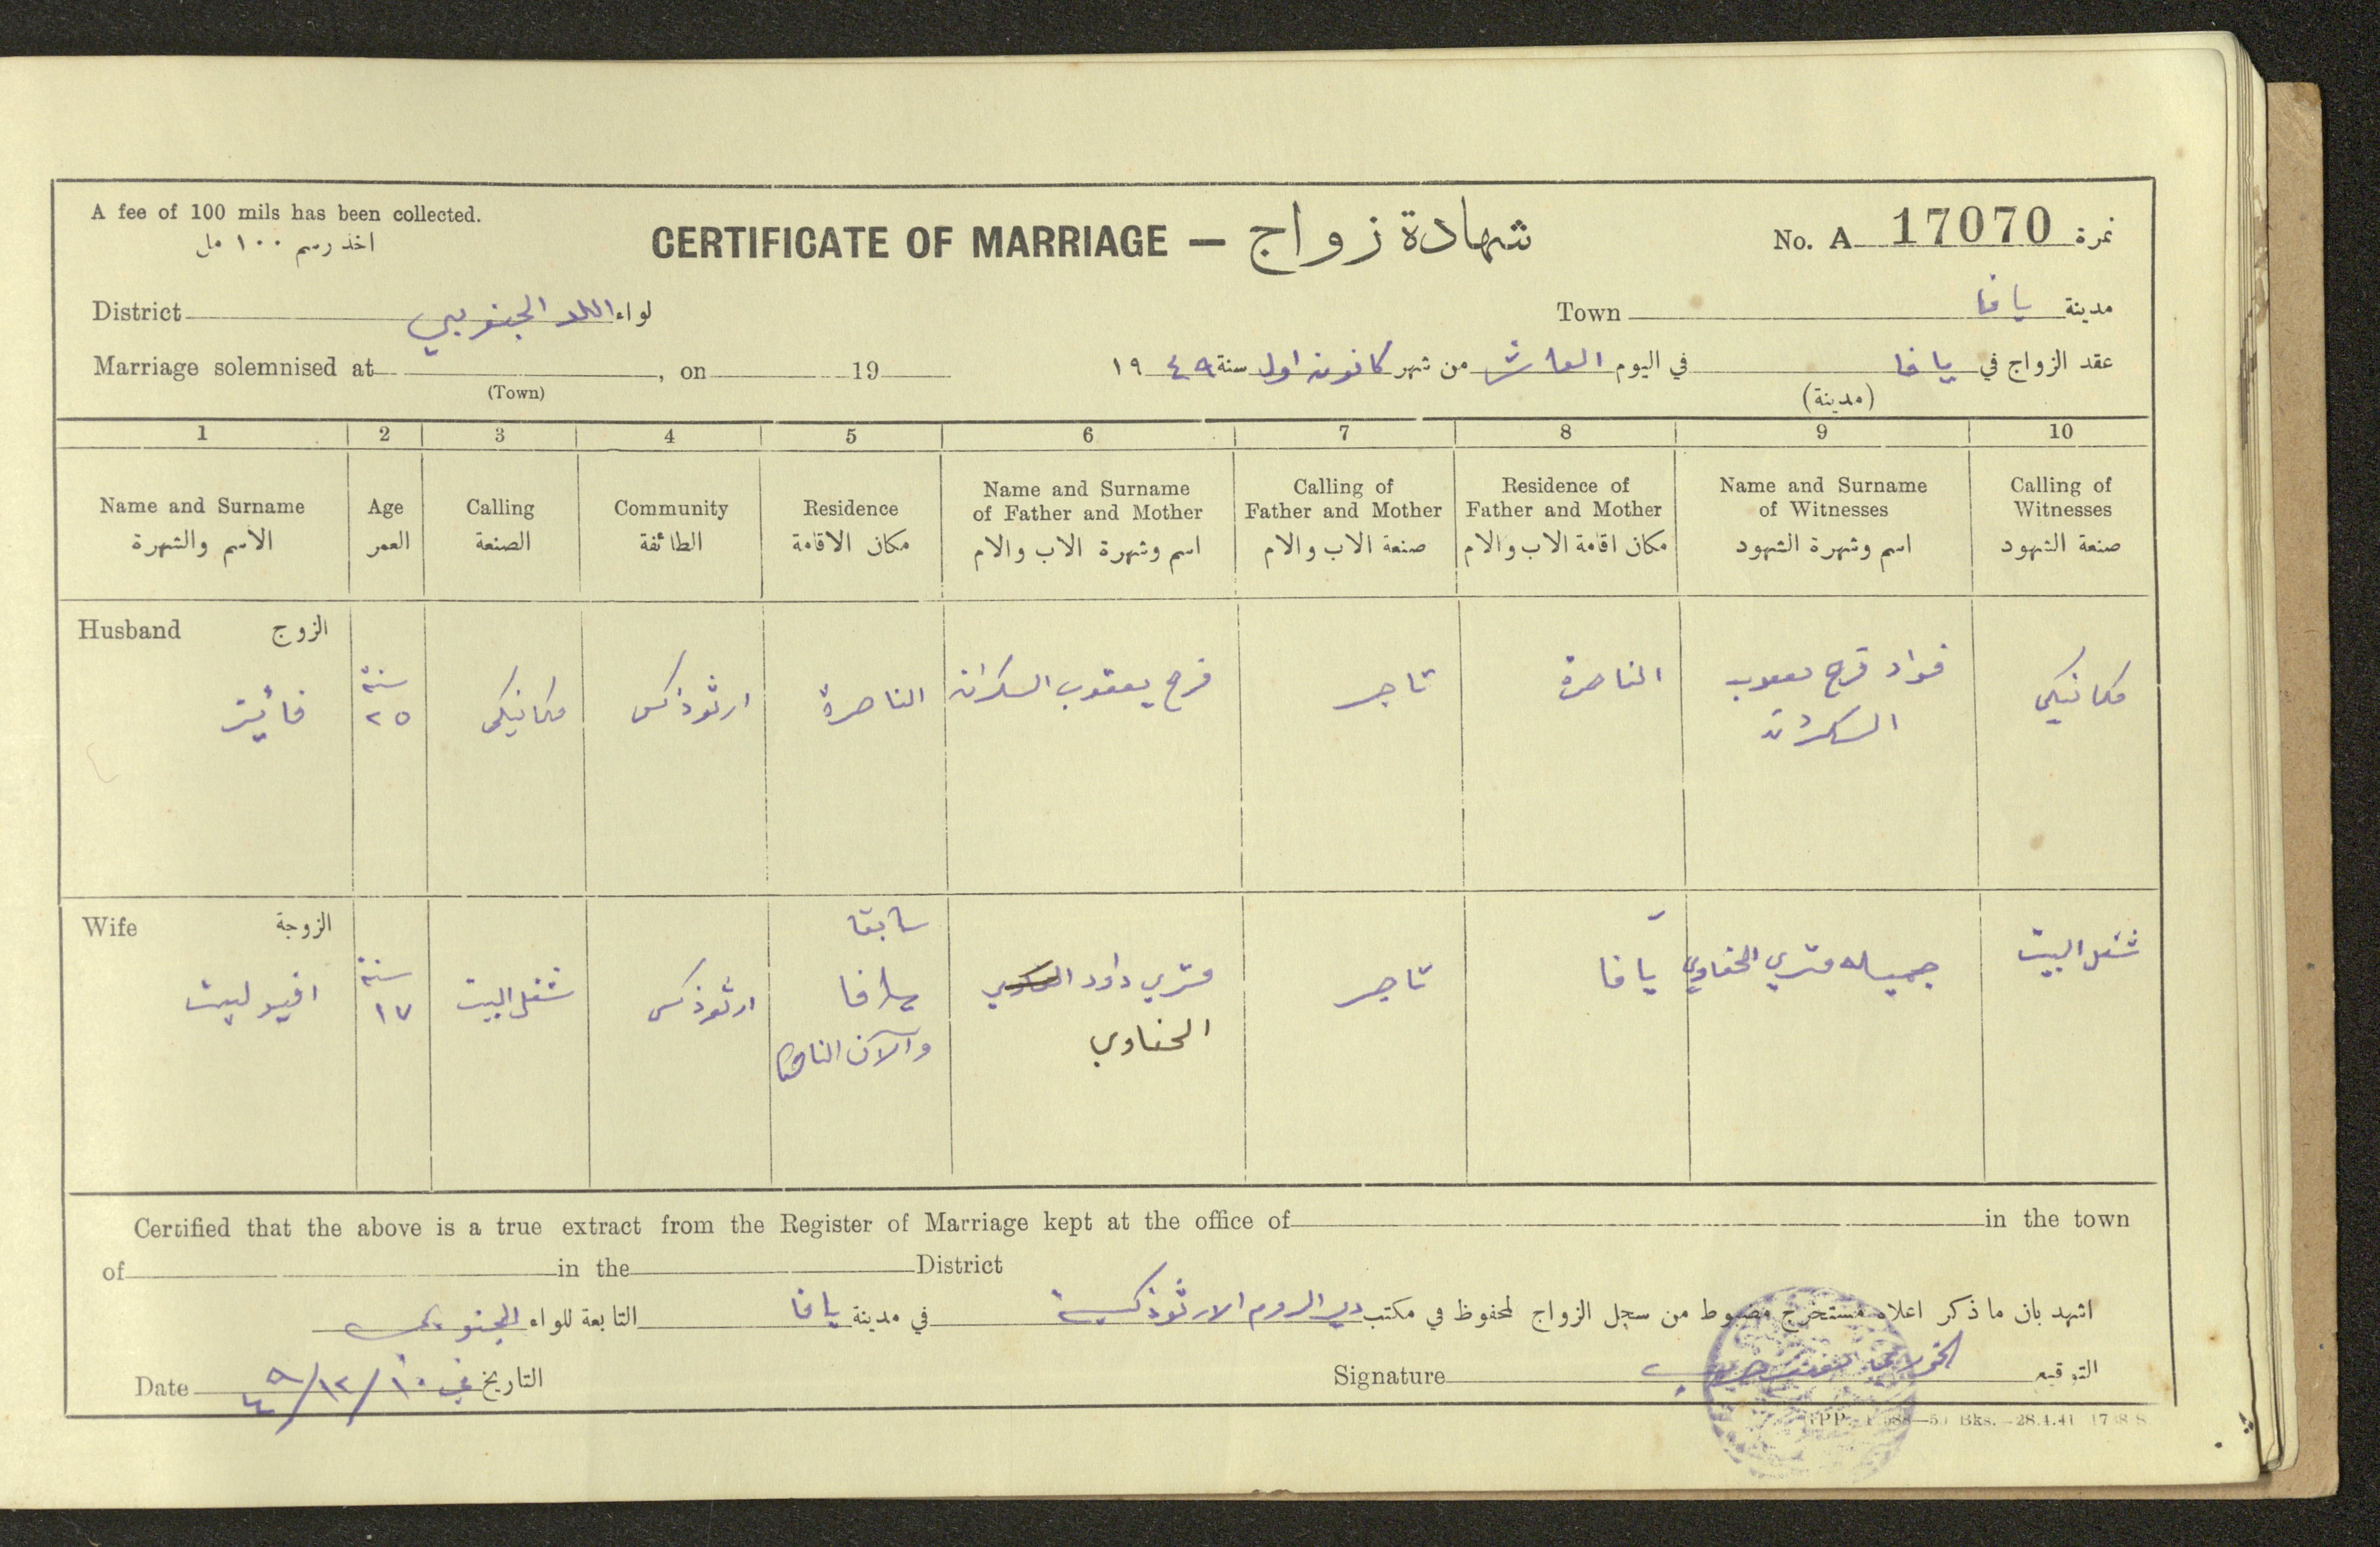 A fee of 100 mils has been collected.
اخذ رسم ١٠٠ مل
CERTIFICATE OF MARRIAGE — شهادة زواج
No. A 17070 نمرة
District لواء اللد الجنوبي
Town مدينة يافا
Marriage solemnised at , on 19
(Town)
عقد الزواج في يافا في اليوم العاشر من شهر كانون اول سنة ١٩٤٩
(مدينة)
1 2 3 4 5 6 7 8 9 10
Name and Surname
الاسم والشهرة
Age
العمر
Calling
الصنعة
Community
الطائفة
Residence
مكان الاقامة
Name and Surname
of Father and Mother
اسم وشهرة الاب والام
Calling of
Father and Mother
صنعة الاب والام
Residence of
Father and Mother
مكان اقامة الاب والام
Name and Surname
of Witnesses
اسم وشهرة الشهود
Calling of
Witnesses
صنعة الشهود
Husband الزوج
فائز
سنة
٢٥
مكانيكي
ارثوذكس
الناصرة
فرح يعقوب السكران
تاجر
الناصرة
فواد فرح يعقوب
السكران
مكانيكي
Wife الزوجة
افيوليت
سنة
١٧
شغل البيت
ارثوذكس
سابقا
يافا
والآن الناصرة
متري داود
الحفاوي
تاجر
يافا
جميله متري الحفاوي
شغل البيت
Certified that the above is a true extract from the Register of Marriage kept at the office of in the town
of in the District
اشهد بان ما ذكر اعلاه مستخرج مضبوط من سجل الزواج المحفوظ في مكتب دير الروم الارثوذكسية في مدينة يافا التابعة للواء الجنوبي
Date التاريخ في ١٠/١٢/٤٩
Signature الخوري التوقيع
28.4.41